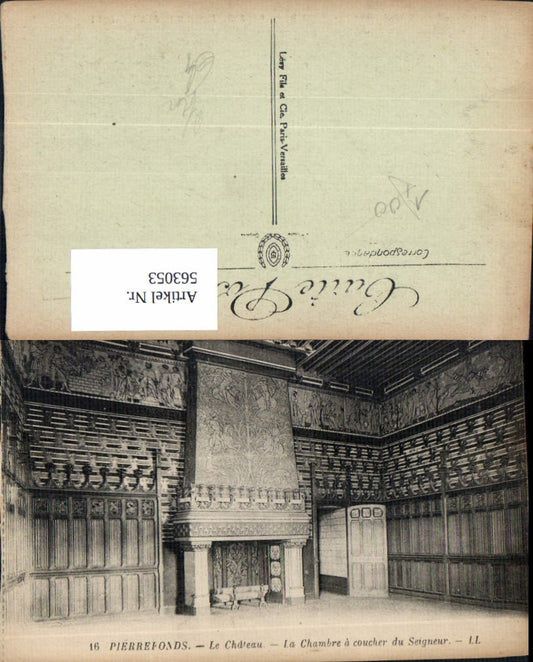 Lévy Fils et Cie, Paris-Versailles
Correspondance
Carte
Artikel Nr.
563053
16 PIERREFONDS. — Le Château. — La Chambre à coucher du Seigneur. — LL